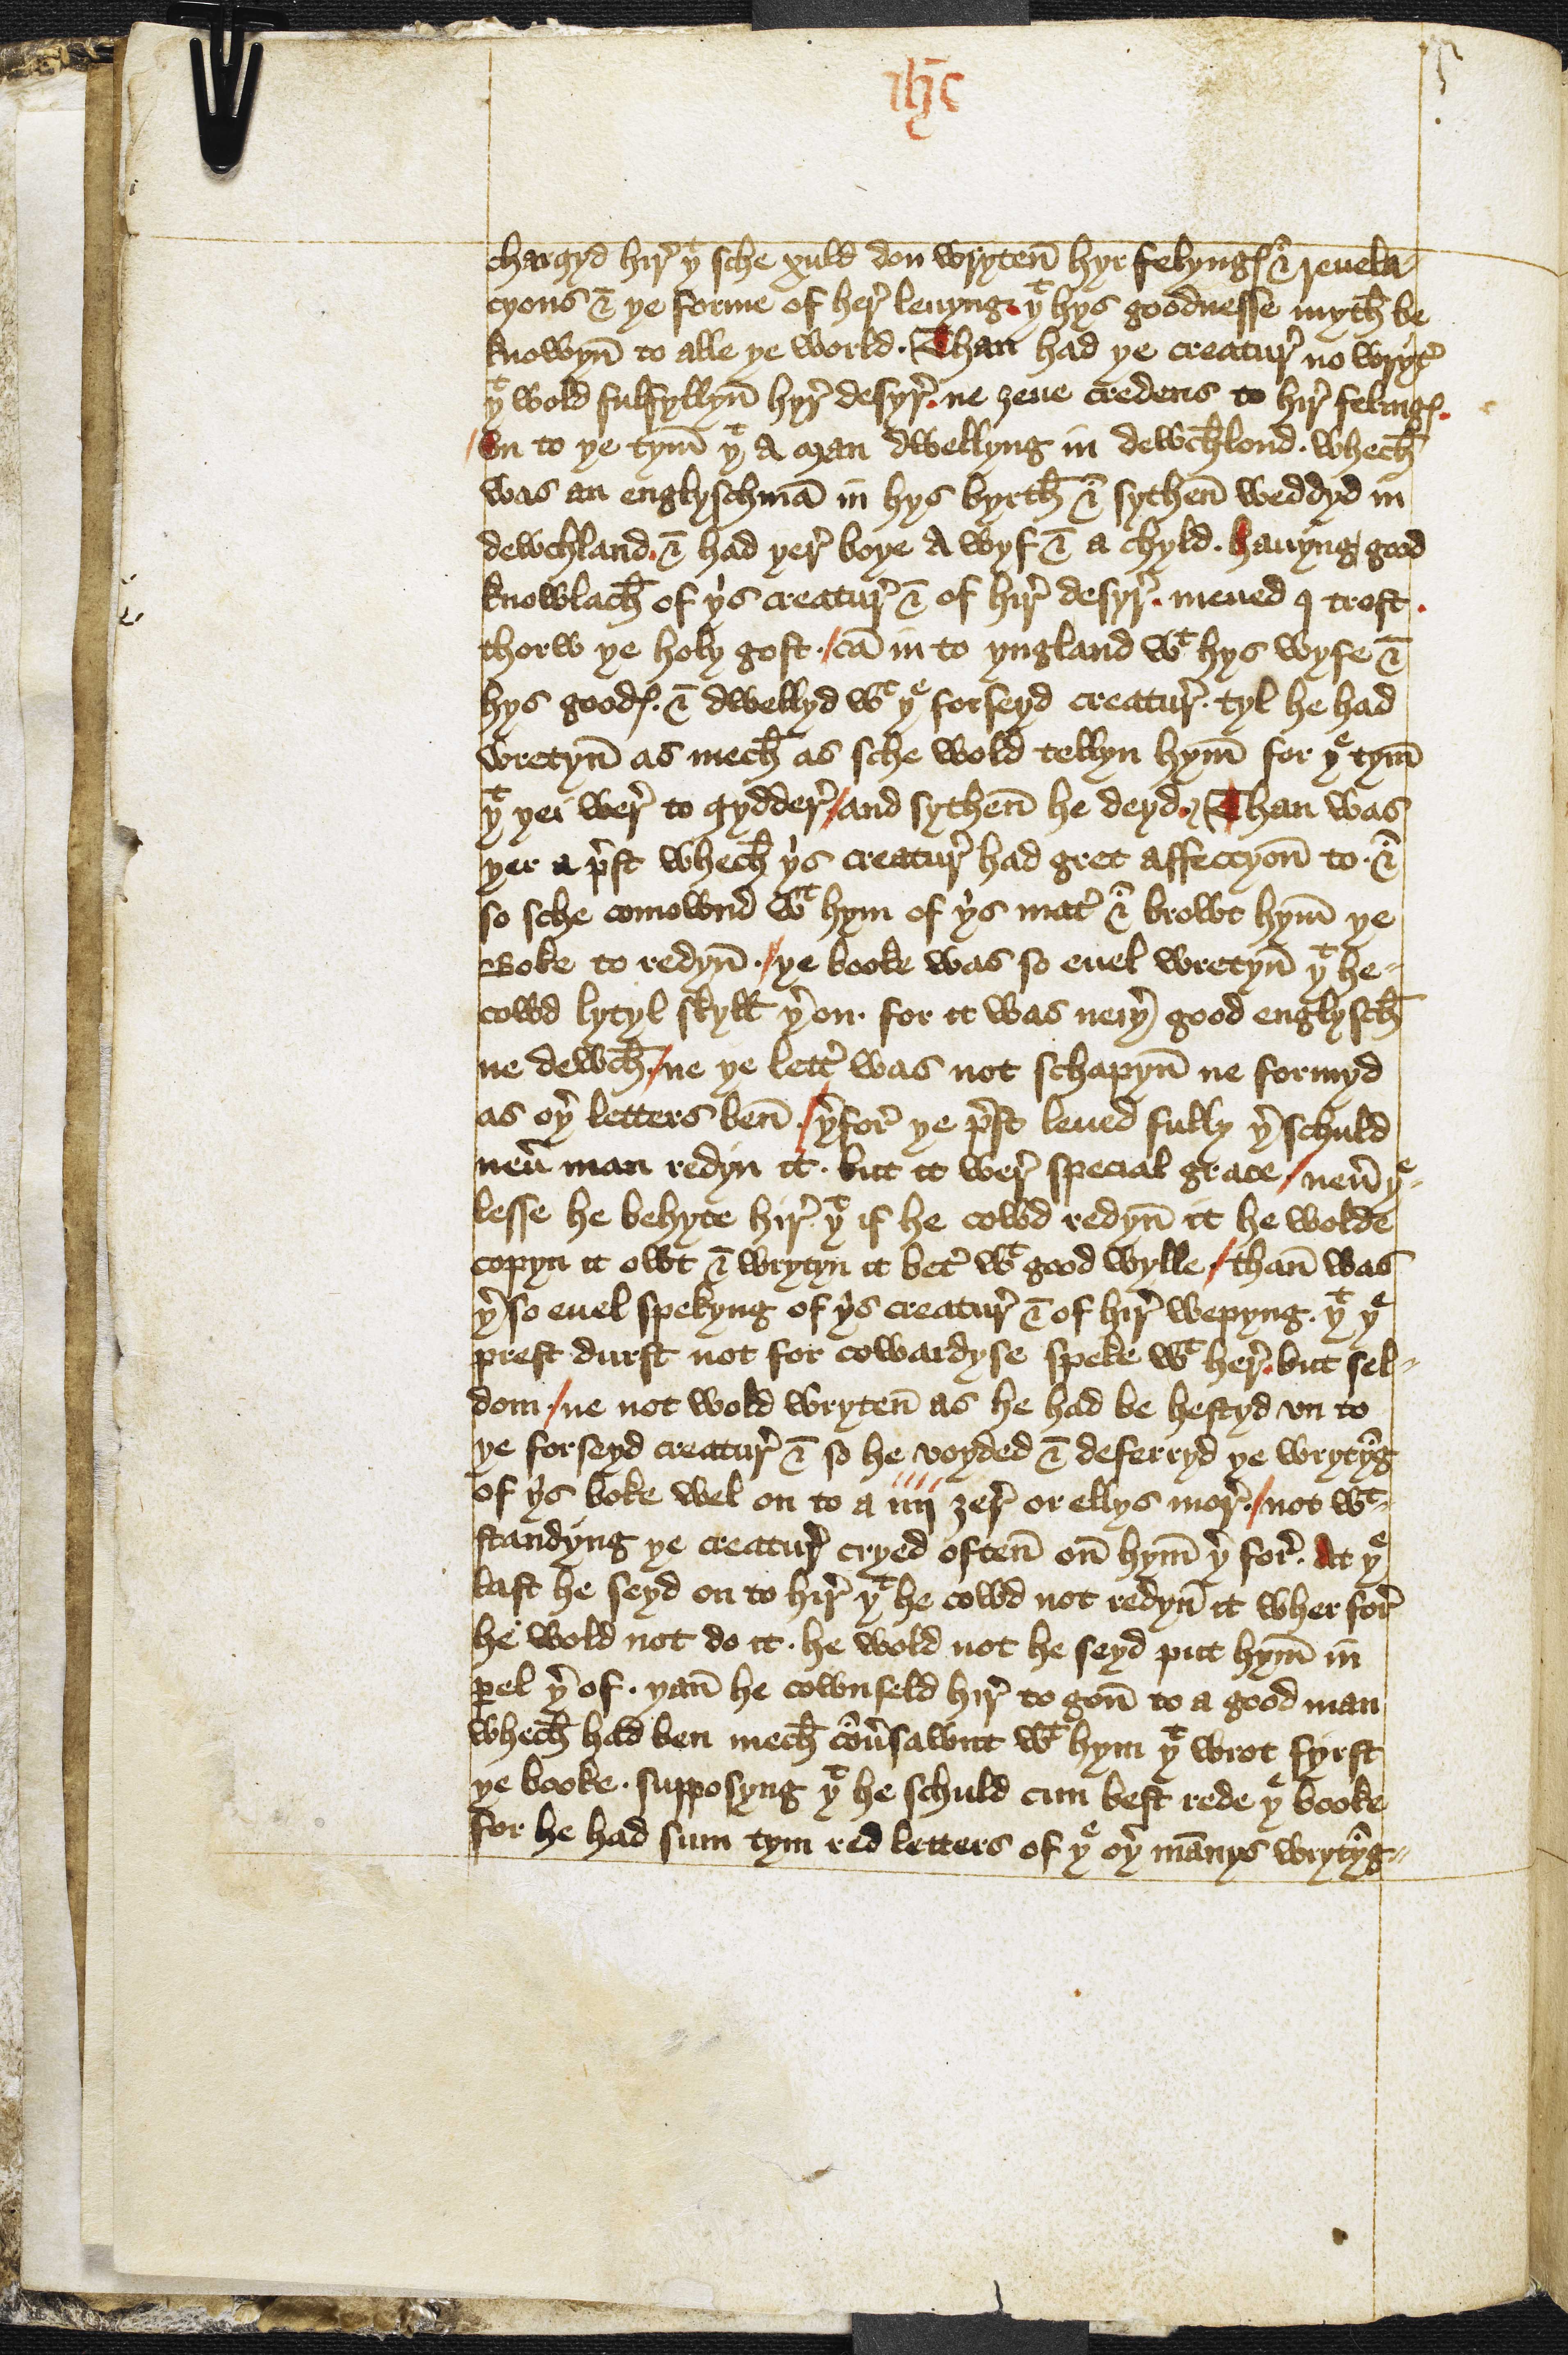 ih̄c
chargyd hir̛ yᵗ sche xuld don wryten̄ hyr felyngꝭ & reuela
cyons & ye forme of her̛ leuyng. yᵗ hys goodnesse myth̄ be
knowyn̄ to alle ye world. Than had ye creatur̛ no wryt̛
yᵗ wold fulfyllyn̄ hyr̛ desyr̛. ne ȝeue credens to hir̛ felingꝭ.
/ vn to ye tym̄ yᵗ A man dwellyng in dewch̄lond. whech̄
was an englyschmā in hys byrth̄ & sythen̄ weddyd in
dewchland. & had yer̛ boye A wyf & a chyld. hauyng good
knowlach̄ of y̛s creatur̛ & of hir̛ desyr̛. meued I trost.
thorw ye holy gost. / cā in to yngland wᵗ hys wyfe &
hys goodꝭ. & dwellyd wᵗ yᵉ forseyd creatur̛. tyl he had
wretyn̄ as mech̄ as sche wold tellyn hym̄ for yᵉ tym̄
yᵗ yei wer̛ to gydder̛ / and sythen̄ he deyd. Than was
yer a p̛st whech̄ y̛s creatur̛ had gret affeccyon̄ to. &
so sche comownd wᵗ hym of y̛s mat̛ & browt hym̄ ye
Boke to redyn̄. / ye booke was so euel wretyn̄ yᵗ he=
cowd lytyl skyll̄ y̛ on. for it was neiy̛ good englysch̄
ne dewch̄. / ne ye lett̛ was not schapyn̄ ne formyd
as oy̛ letters ben̄. / y̛for̛ ye p̛st leued fully y̛ schuld
neư man redyn it. but it wer̛ special grace / neư yᵉ=
lesse he behyte hir̛. yᵗ if he cowd redyn̄ it he wolde
copyn it owt & wrytyn it bet̛ wᵗ good wylle / than̄ was
y̛ so euel spekyng of y̛s creatur̛ & of hir̛ wepyng. yᵗ yᵉ
prest durst not for cowardyse speke wᵗ her̛. but sel=
dom. / ne not wold wryten̄ as he had be hestyd vn to
ye forseyd creatur̛ & so he voyded & deferryd ye wrytȳg
of y̛s boke wel on to a iiij ȝer̛ or ellys mor̛. / not wᵗ=
standyng ye creatur̛ cryed often̄ on̄ hym̄ y̛ for̛. At yᵉ
last he seyd on to hir̛ yᵗ he cowd not redyn̄ it wher for̛
he wold not do it. he wold not he seyd put hym̄ in
ꝑel y̛ of. yan̄ he cownseld hir̛ to gon̄ to a good man
whech̄ had ben mech̄ cōưsawnt wᵗ hym yᵗ wrot fyrst
ye booke. supposyng yᵗ he schuld cun best rede yᵉ booke
for he had sum tym red letters of yᵉ oy̛ mānys wrytȳg=